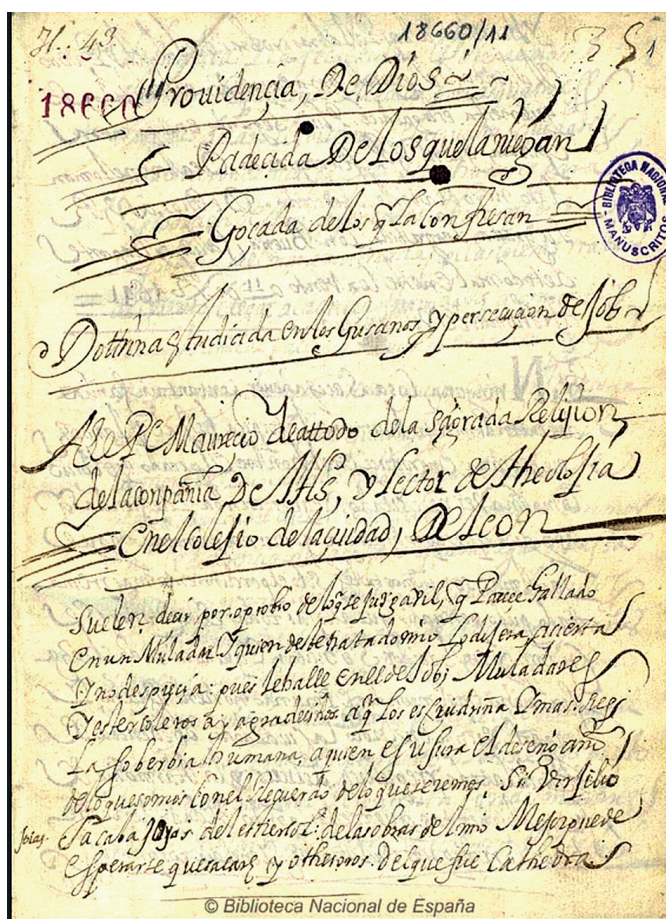 H. 43
18660/11
1
18660
Providençia, De, Dios
Padecida De los que la niegan
Goçada de los q̃ la confiesan
Dottrina estudiada en los Gusanos y persecuçion de Job
Al R P Mauricio de attodo de la Sagrada Religion
de la conpañia De IHS, y lector de theologia
en el colesio de la çiudad, De leon
Suelen decir por oprobio de lo q̃ se juzga vil, q̃ Parece Hallado
en un Muladar Y quien deste tratado mio lo dijera, acierta
Y no desprecia: pues le halle en el de Job; Muladares
Y estercoleros ay agradecidos a q̃ los escudriña Y mas
la soberbia humana, a quien es usura el
de lo que somos con el Recuerdo de lo que seremos, Si Virsilio
joias
sacaba joyas del estiercol de las obras de Mejor puede
esperarse que sacare yo thesoros del que fue Cathedra
BIBLIOTECA NACIONAL
MANUSCRITOS
© Biblioteca Nacional de España